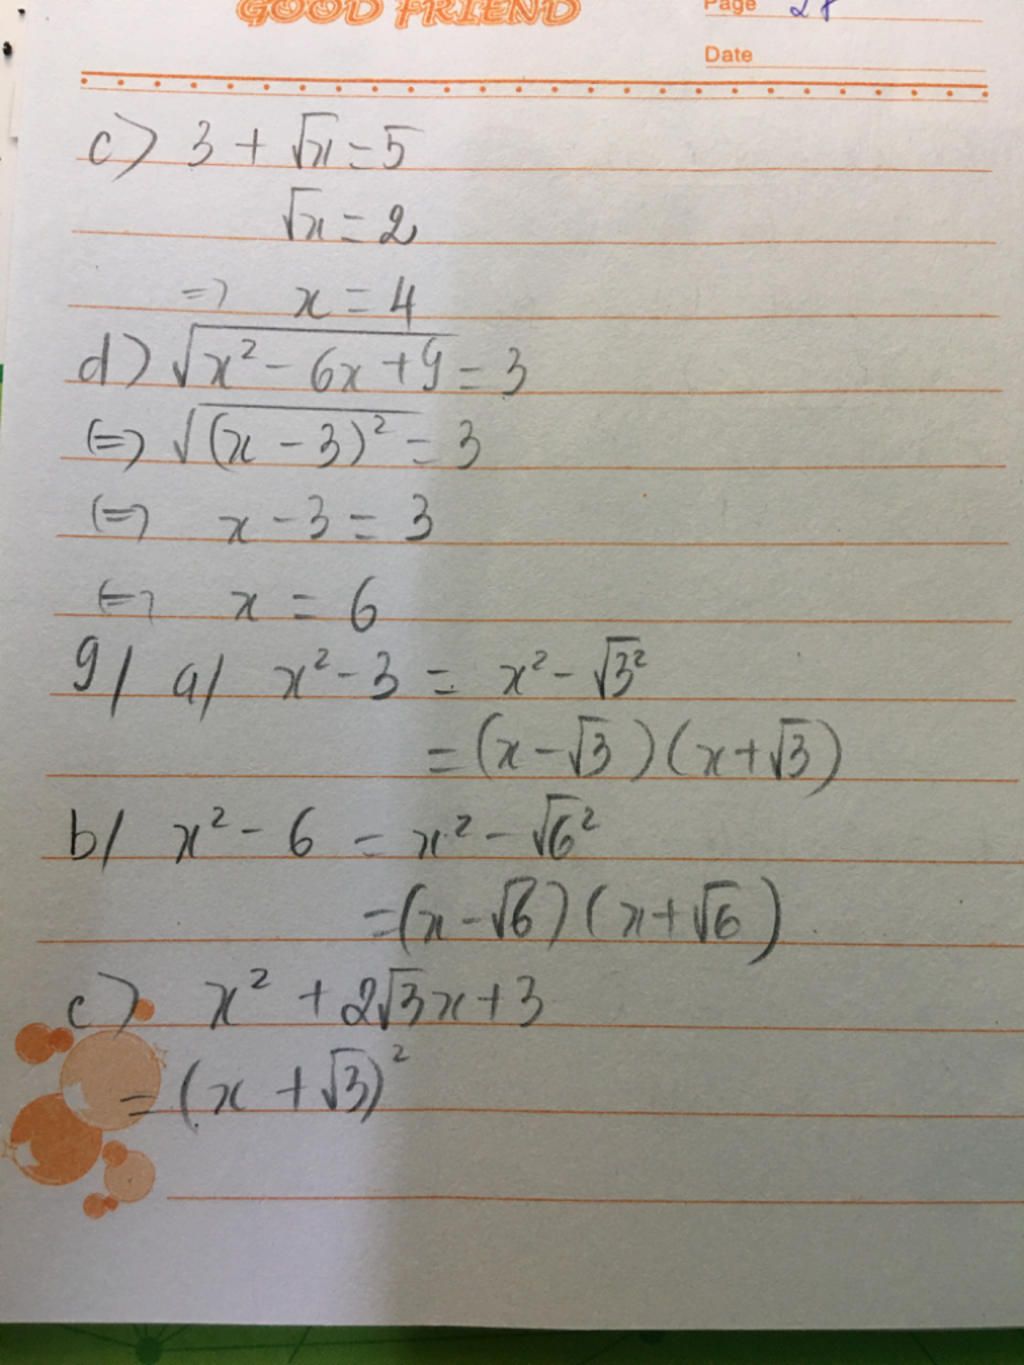 GOOD FRIEND
Page 28
Date
c) 3 + √x = 5
√x = 2
=> x = 4
d) √(x² - 6x + 9) = 3
<=> √((x - 3)²) = 3
<=> x - 3 = 3
<=> x = 6
9/ a/ x² - 3 = x² - √3²
= (x - √3)(x + √3)
b/ x² - 6 = x² - √6²
= (x - √6)(x + √6)
c) x² + 2√3x + 3
= (x + √3)²